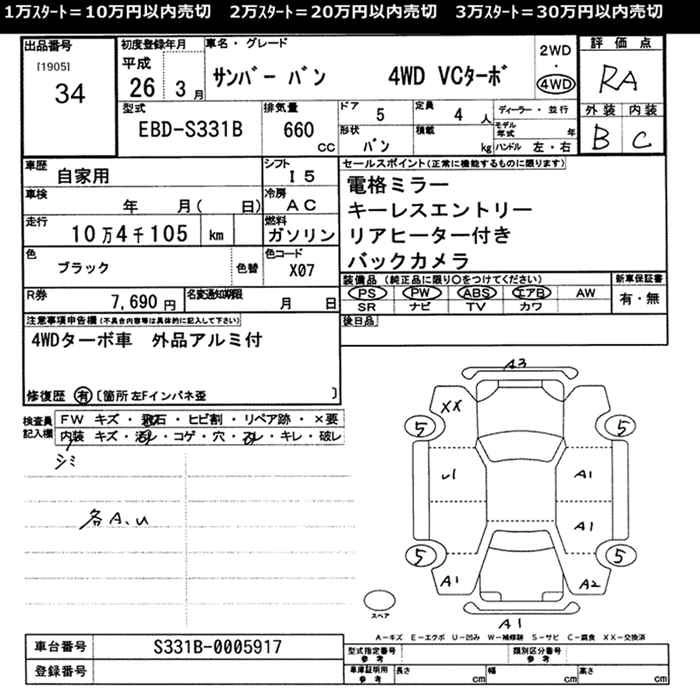 1万スタート=10万円以内売切 2万スタート=20万円以内売切 3万スタート=30万円以内売切
出品番号
[1905]
34
初度登録年月
平成
26 3月
車名・グレード
サンバー バン 4WD VCターボ
2WD
・
4WD
評価点
RA
外装 内装
B C
型式
EBD-S331B
排気量
660
CC
ドア
5
定員
4 人
形状
バン
積載
kg
ディーラー・並行
モデル年式 年
ハンドル 左・右
車歴
自家用
シフト
I5
車検
年 月( 日)
冷房
AC
走行
10万4千105 km
燃料
ガソリン
色
ブラック
色替
色コード
X07
R券
7,690円
名変通知期限
月 日
セールスポイント(正常に機能するものに限ります)
電格ミラー
キーレスエントリー
リアヒーター付き
バックカメラ
装備品(純正品に限り○をつけてください)
PS PW ABS エアB AW
SR ナビ TV カワ
新車保証書
有・無
後日品
注意事項申告欄(不具合内容等は具体的に記入して下さい)
4WDターボ車 外品アルミ付
修復歴 有 〔箇所 左Fインパネ歪 〕
検査員記入欄
FW キズ・飛石・ヒビ割・リペア跡・×要
内装 キズ・汚レ・コゲ・穴・スレ・キレ・破レ
シミ
各A、U
A3
XX
5
5
U1
A1
A1
5
5
A1
A2
A1
スペア
A-キズ E-エクボ U-凹み W-補修跡 S-サビ C-腐食 XX-交換済
車台番号
S331B-0005917
登録番号
型式指定番号
参考
類別区分番号
参考
車庫証明用
参考
長さ cm
幅 cm
高さ cm